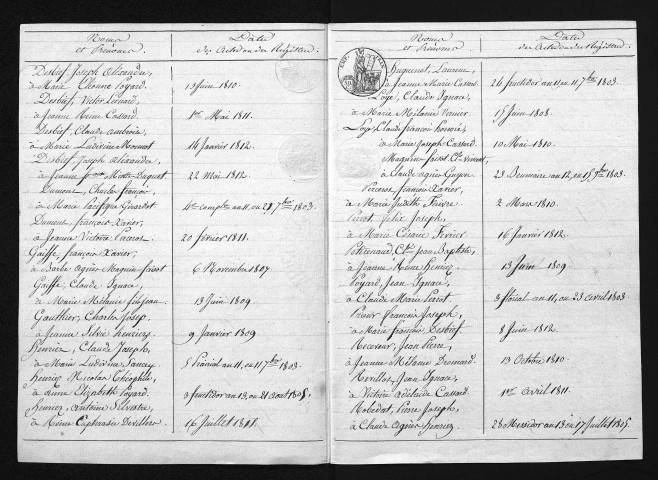 Noms
et Prénoms.
Date
des Actes ou des Registres.
Desbief, Joseph Alexandre,
à Marie Poyard.
13 Juin 1810.
Desbief, Victor Léonard,
à Jeanne Reine Cassard.
1er Mai 1811.
Desbief, Claude Ambroise,
à Marie Ludivine
14 Janvier 1812.
Desbief Joseph Alexandre
à Jeanne
22 Mai 1812.
Dumont, Charles françois,
à Marie Pacifique Girardot
4e compl.re an 11, ou 21 7bre 1803.
Dumont, françois Xavier,
à Jeanne Victoire
20 février 1811.
Gaiffe, françois Xavier,
à Barbe Agnès Maguin-faivot
6 Novembre 1807
Gaiffe, Claude Ignace,
à Marie Mélanie
13 Juin 1809
Gauthier, Charles Josep,
à Jeanne
9 Janvier 1809
Henriez, Claude Joseph,
à Marie Ludivine
5 an 11, ou
Henriez Nicolas Théophile,
à Anne Elizabeth Poyard.
3 fructidor an 13, ou 21 aout 1805.
Henriez, Antoine Silvestre,
à Reine Euphrasie Devillers.
16 Juillet 1811.
Noms
et Prénoms
Date
des Actes ou des Registres.
Huguenet, Laurent,
à Jeanne Marie Cassard.
24 fructidor an 11, ou 11 7bre 1803.
Loye, Claude Ignace,
à Marie Mélanie Vernier
17 Juin 1808.
Loye, Claude françois honoré,
à Marie Joseph Cassard.
10 Mai 1810.
Maguin-faivot Cde Vincent,
à Claude Agnès Guyon
23 Brumaire an 12, ou 15 9bre 1803.
françois Xavier,
à Marie Judith Faivre
2 Mars 1810.
félix Joseph,
à Marie Césaire
16 Janvier 1812.
Cde Jean Baptiste,
à Jeanne Reine Henriez
13 Juin 1809
Poyard, Jean Ignace,
à Claude Marie
3 floréal an 11, ou 23 avril 1803.
françois Joseph,
à Marie françoise Desbief
8 Juin 1812.
Receveur, Jean Pierre,
à Jeanne Mélanie
13 Octobre 1810.
Jean Ignace,
à Victoire Adélaïde Cassard
1er Avril 1811.
Pierre Joseph,
à Claude Agnès Henriez
28 Messidor an 13 ou 17 Juillet 1805.